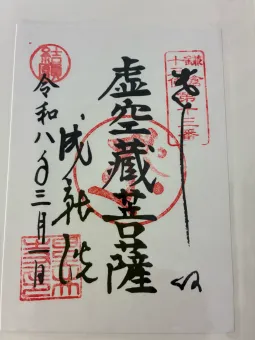 鎌倉
十三仏
第十三番
奉拝
虚空藏菩薩
成就院
令和八年三月一日
結願